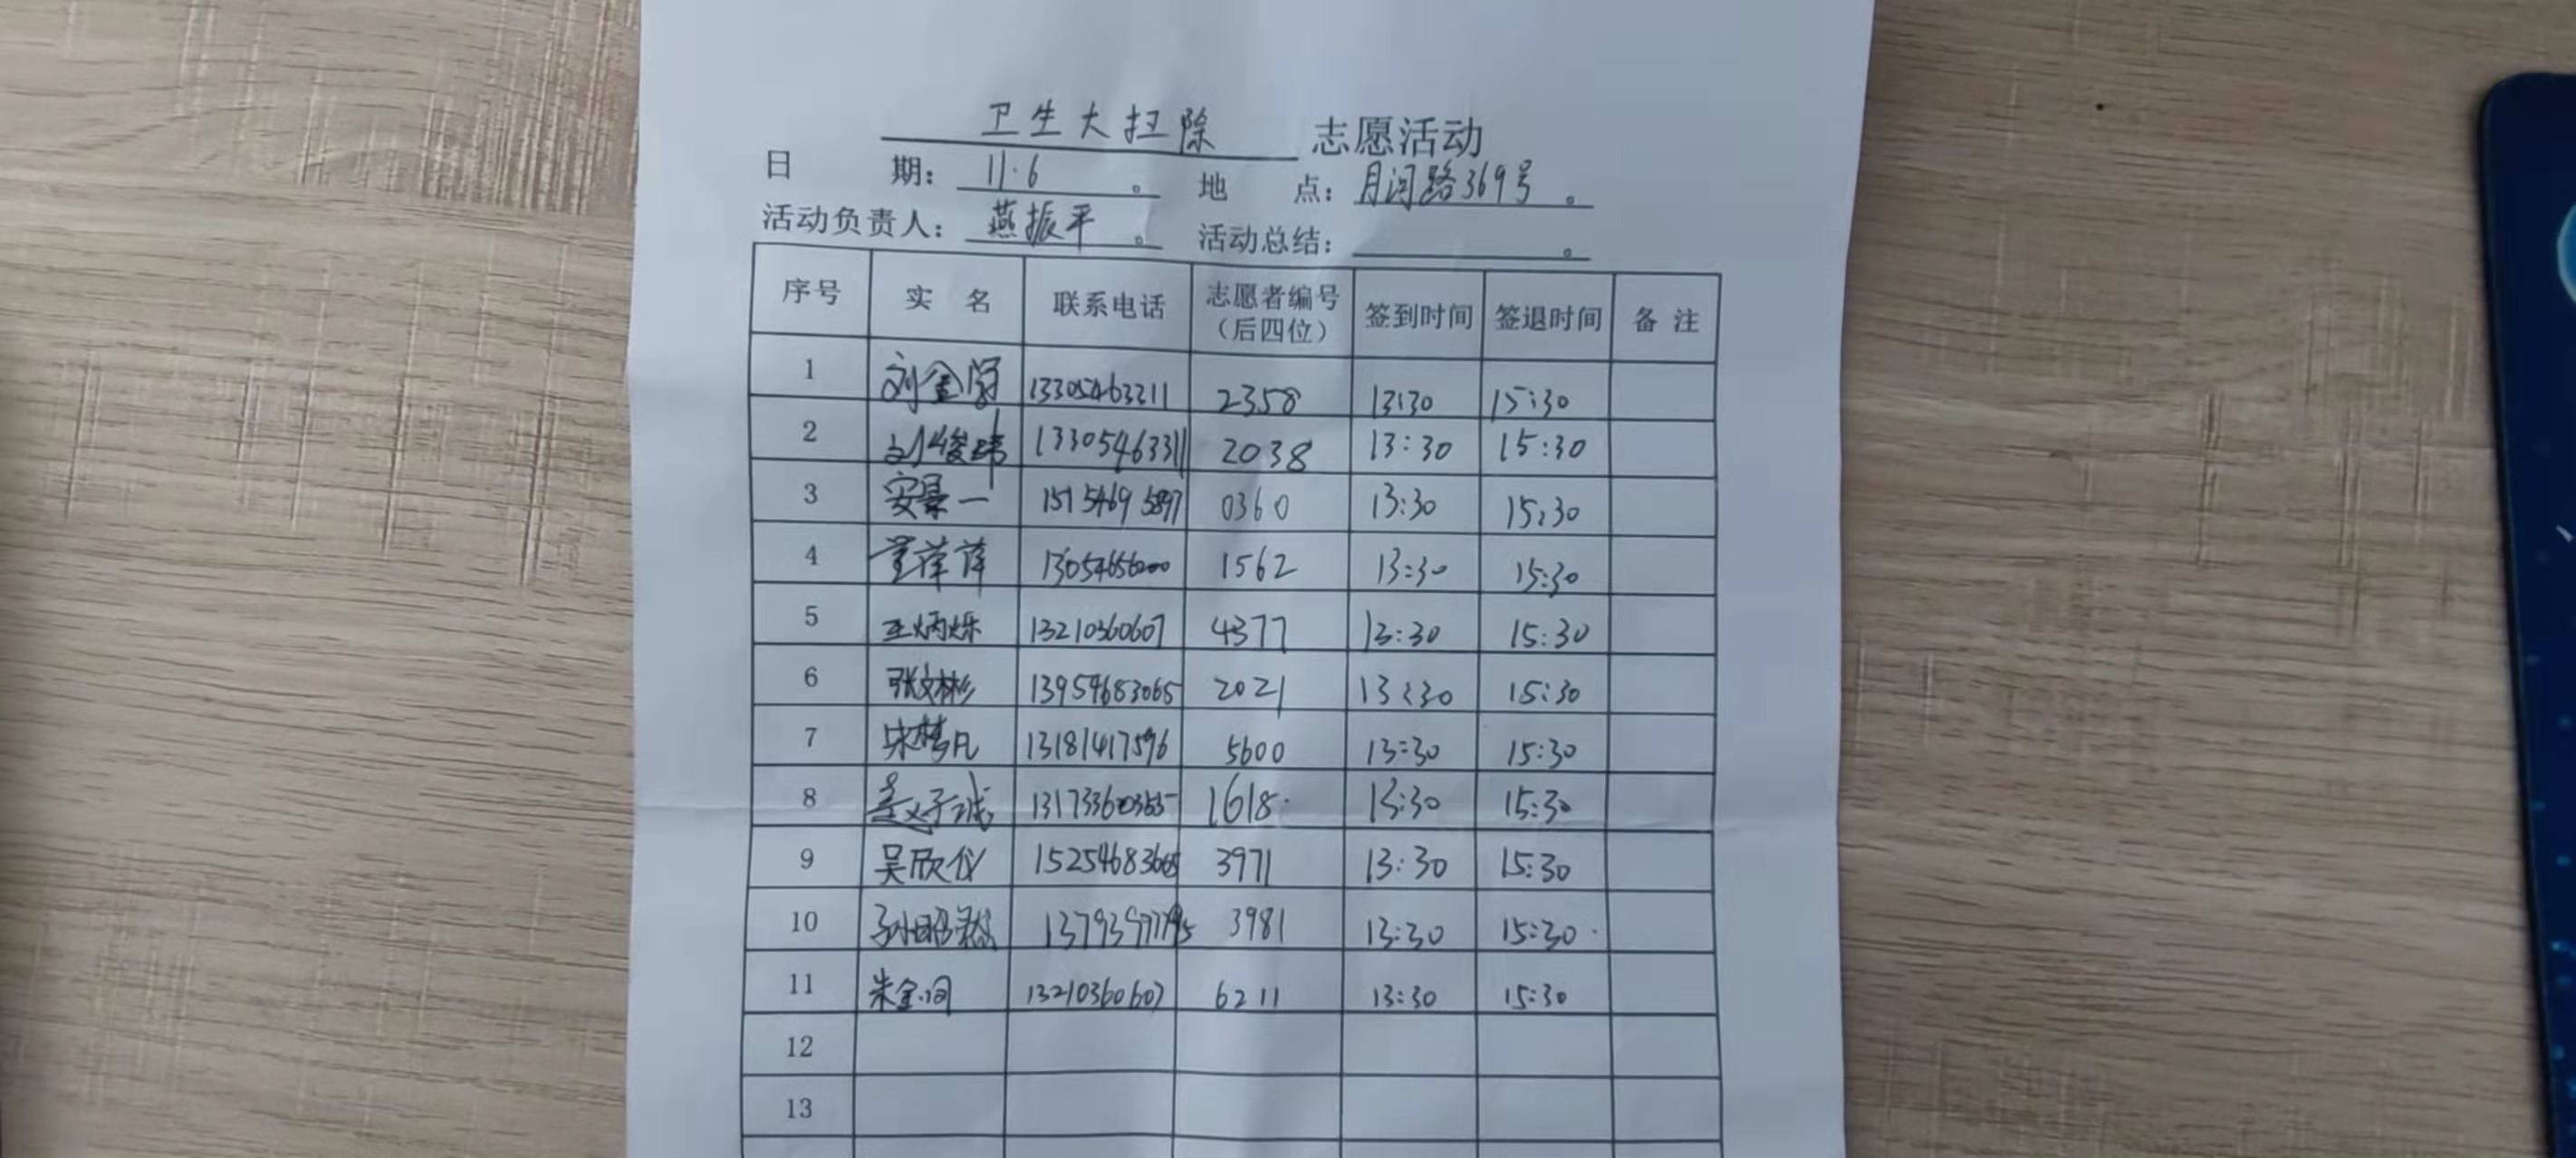 卫生大扫除 志愿活动
日 期: 11.6 。 地 点: 月河路369号 。
活动负责人: 燕振平 。 活动总结: 。
序号 实 名 联系电话 志愿者编号(后四位) 签到时间 签退时间 备 注
1 刘金 2358 13:30 15:30
2 刘俊玮 13305463311 2038 13:30 15:30
3 安景一 15154695897 0360 13:30 15:30
4 董萍萍 1562 13:30 15:30
5 王炳烁 13210360607 4377 13:30 15:30
6 张文彬 13954683065 2021 13:30 15:30
7 宋梦凡 13181417596 5600 13:30 15:30
8 孟子诚 1618 13:30 15:30
9 吴欣仪 15254683665 3971 13:30 15:30
10 孙昭 3981 13:30 15:30
11 朱金 13210360607 6211 13:30 15:30
12
13